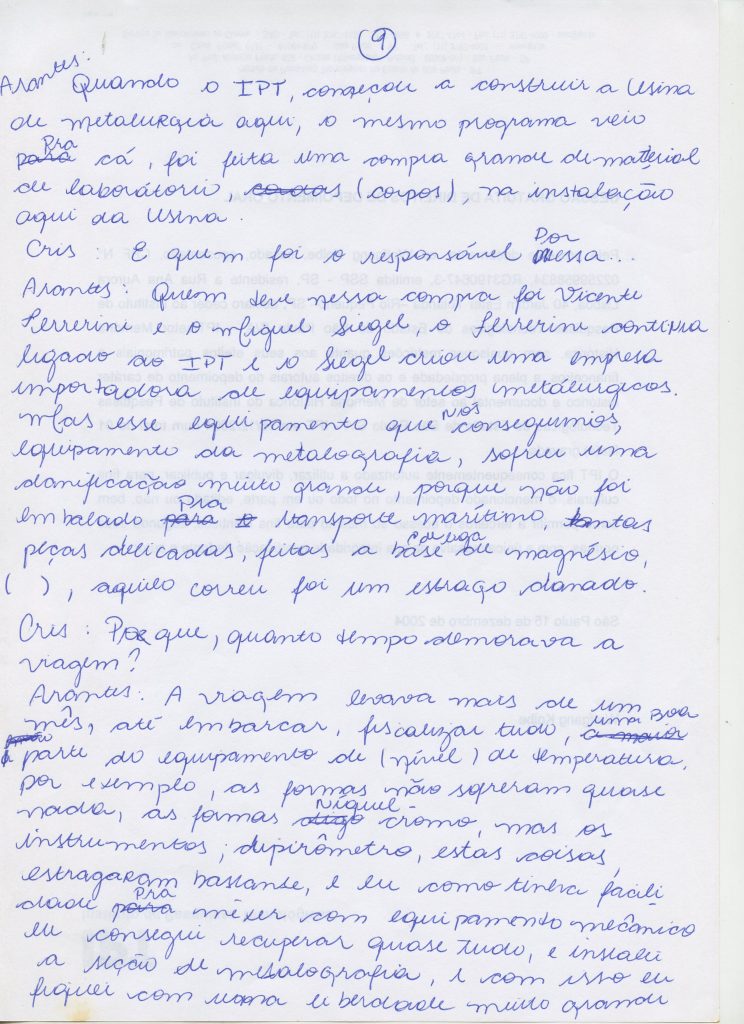 9
Arantes: Quando o IPT, começou a construir a Usina
de metalurgia aqui, o mesmo programa veio
Pra
para cá, foi feita uma compra grande de material
de laboratório (corpos), na instalação
aqui da Usina.
Cris: E quem foi o responsável Por nessa...
Arantes: Quem teve nessa compra foi Vicente
Ferrerini e o Miguel Siegel, o Ferrerini continua
ligado ao IPT e o Siegel criou uma empresa
importadora de equipamentos metalúrgicos.
Mas esse equipamento que nós conseguimos,
equipamento da metalografia, sofreu uma
danificação muito grande porque não foi
embalado Pra para o transporte marítimo tantas
peças delicadas, feitas a base de liga magnésio,
( ), aquilo correu foi um estrago danado.
Cris: Por que, quanto tempo demorava a
viagem?
Arantes: A viagem levava mais de um
mês, até embarcar, fiscalizar tudo, uma boa a maior
parte do equipamento de (nível) de temperatura,
por exemplo, as formas não sofreram quase
nada, as formas Níquel - digo cromo, mas os
instrumentos, dupirômetro, estas coisas,
estragaram bastante, e eu como tinha facili
dade Pra para mexer com equipamento mecânico
eu consegui recuperar quase tudo, e instalei
a seção de metalografia, e com isso eu
fiquei com uma liberdade muito grande